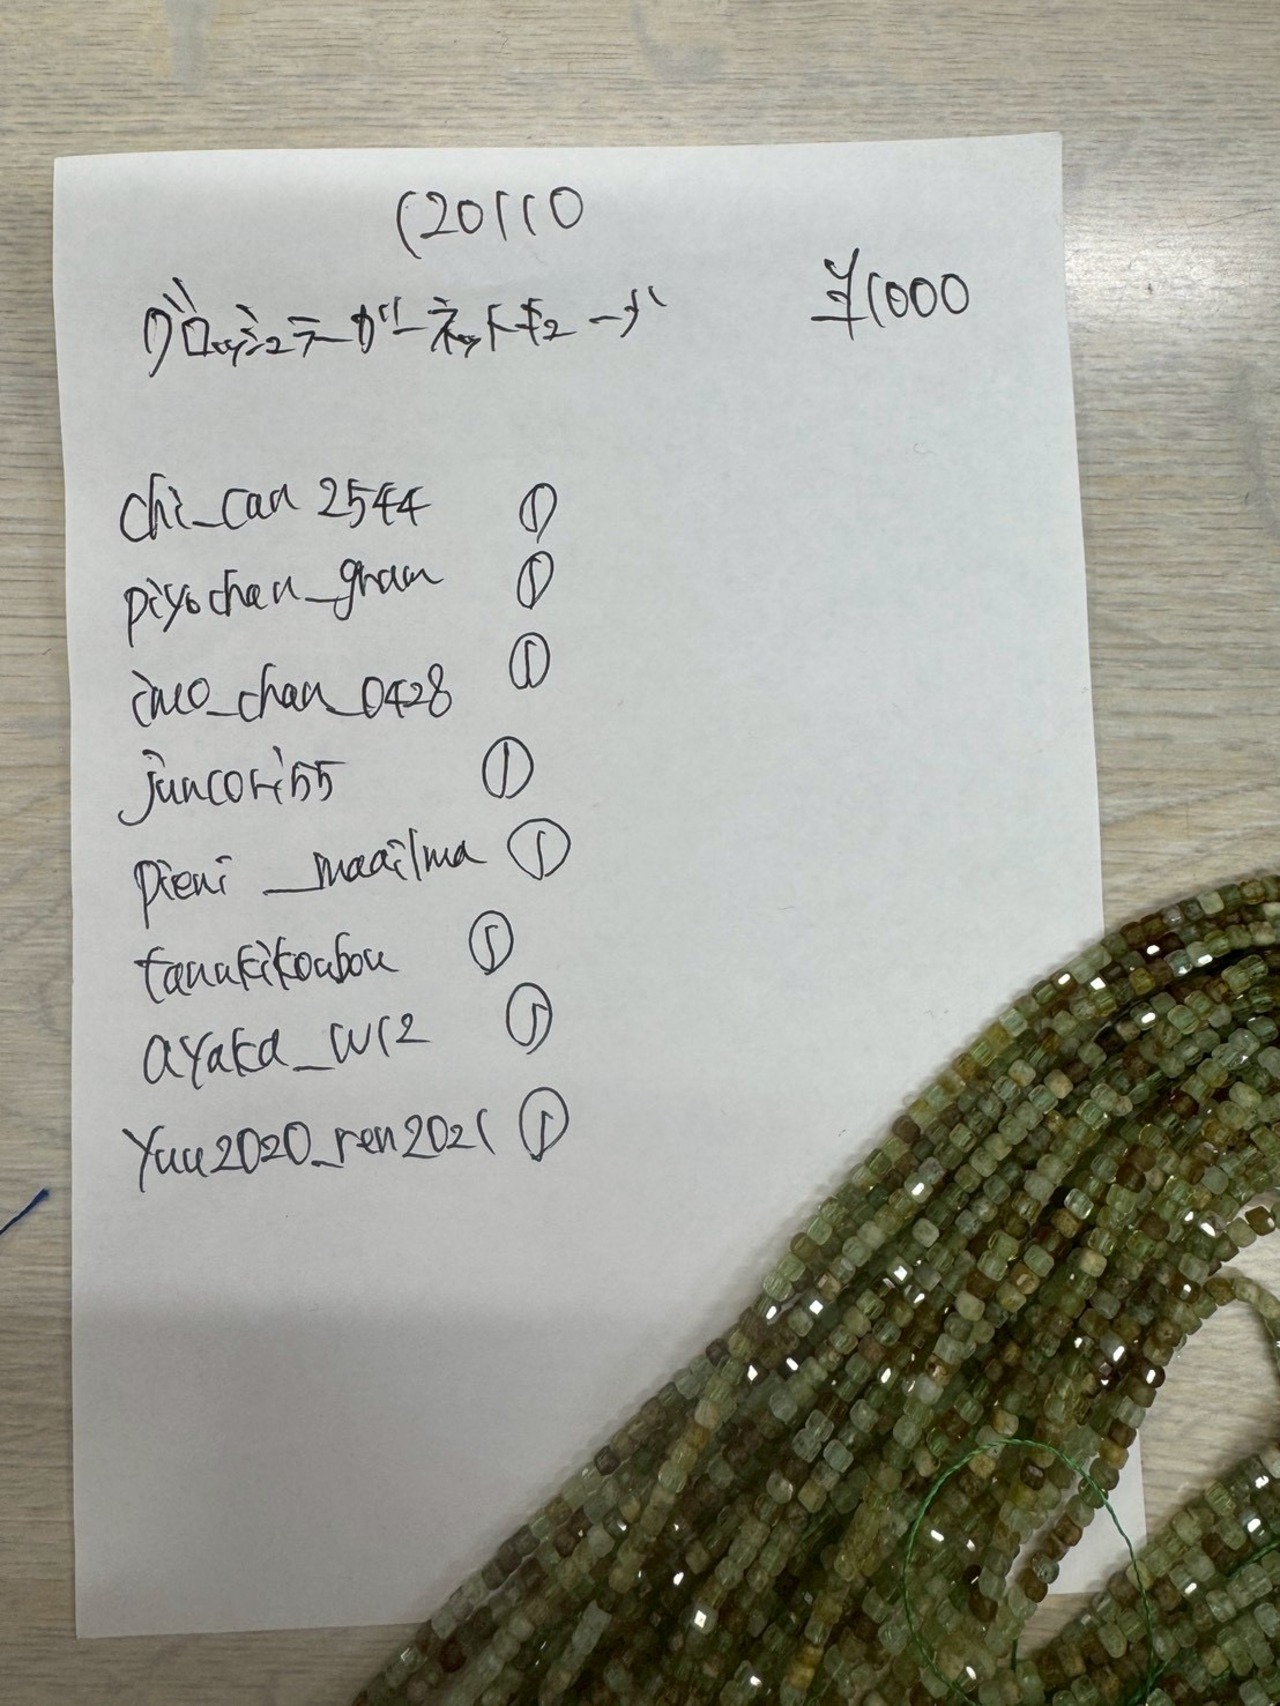 120110
グロッシュラーガーネットキューブ ¥1000
chi_can2544 ①
piyochan_gram ①
ino_chan_0428 ①
juncori55 ①
pieni_maailma ①
tanukikoubou ①
ayaka_w12 ①
yuu2020_ren2021 ①